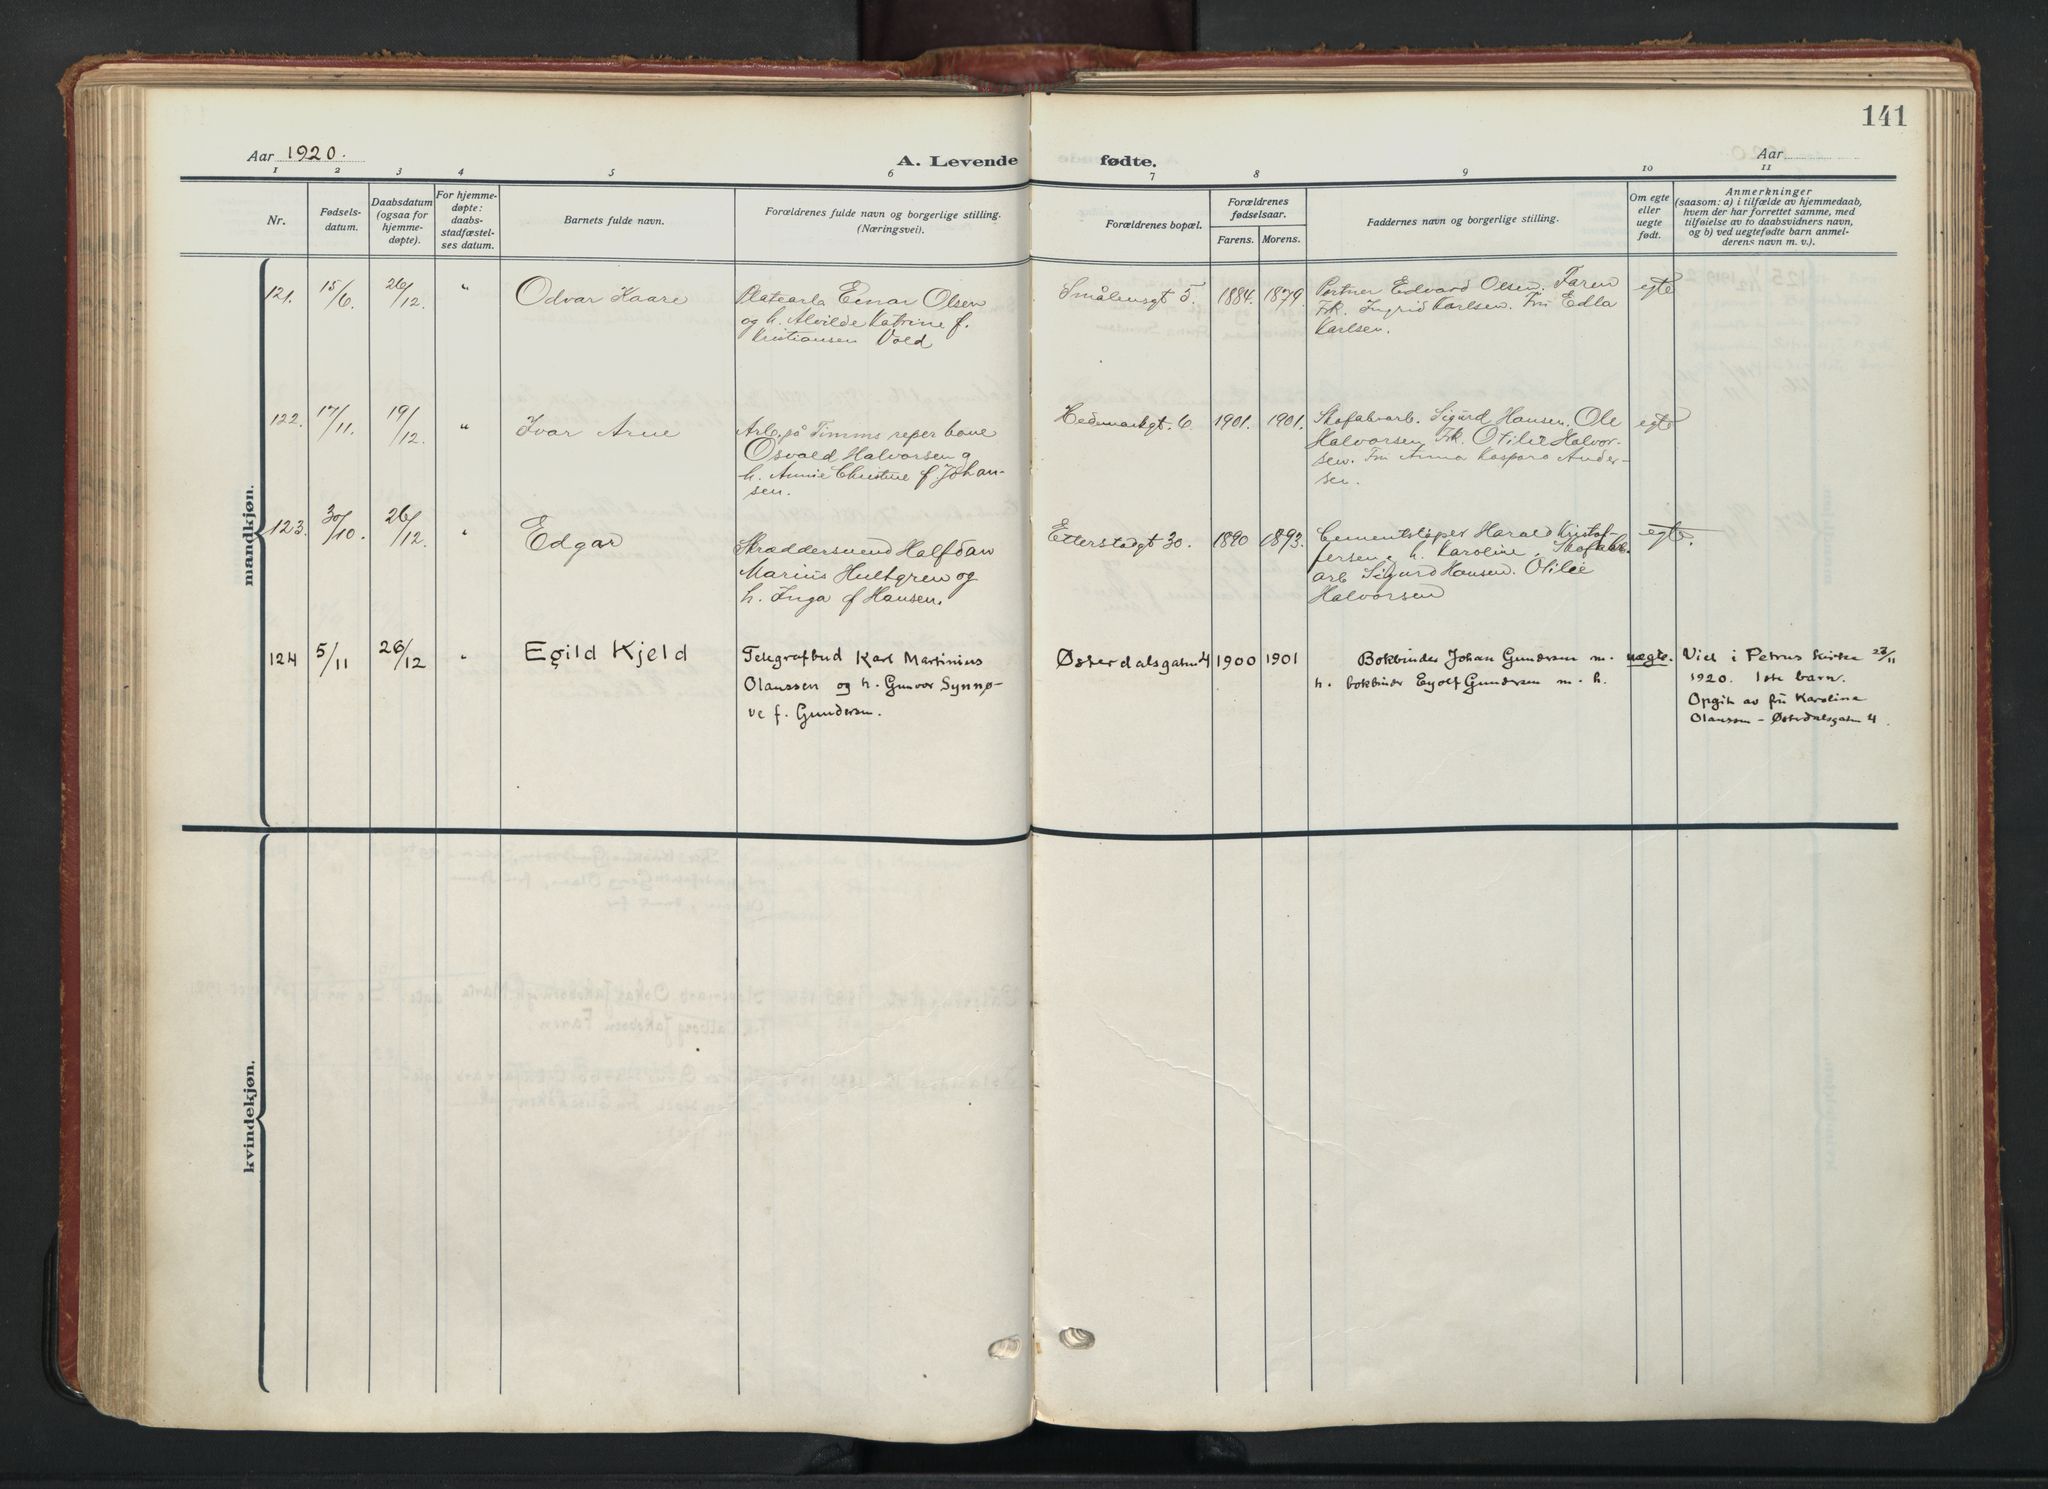 141
Aar 1920.
A. Levende fødte.
Aar
1 2 3 4 5 6 7 8 9 10 11
Nr.
Fødsels-
datum.
Daabsdatum
(ogsaa for
hjemme-
døpte).
For hjemme-
døpte:
daabs-
stadfæstel-
ses datum.
Barnets fulde navn.
Forældrenes fulde navn og borgerlige stilling.
(Næringsvei).
Forældrenes bopæl.
Forældrenes
fødselsaar.
Farens. Morens.
Faddernes navn og borgerlige stilling.
Om egte
eller
uegte
født.
Anmerkninger
(saasom: a) i tilfælde av hjemmedaab,
hvem der har forrettet samme, med
tilføielse av to daabsvidners navn,
og b) ved uegtefødte barn anmel-
derens navn m. v.).
mandkjøn.
121. 15/6. 26/12. " Odvar Kaare
Platearb Einar Olsen
og h. Alvilde Katrine f.
Kristiansen Vold
Smålensgt 5. 1884. 1879.
Portner Edvard Olsen. Faren
Frk. Ingrid Karlsen. Fru Edla
Karlsen.
egte
122. 17/11. 19/12. " Ivar Arne
Arb. på Timms reper bane
Osvald Halvorsen og
h. Annie Christine f. Johan-
sen.
Hedemarkgt. 6 1901. 1901.
Skofabarb. Sigurd Hansen. Ole
Halvorsen. Frk. Otilie Halvor-
sen. Fru Anna Kaspara Ander-
sen.
egte
123. 30/10. 26/12. " Edgar
Skræddersvend Halfdan
Marius Hultgren og
h. Inga f Hansen.
Etterstadgt 30. 1890 1893.
Cementstøper Harald Kristof-
fersen, h. Karoline. Skofabr.
arb Sigurd Hansen. Otilie
Halvorsen
egte.
124 5/11 26/12 " Egild Kjeld
Telegrafbud Karl Martinius
Olaussen og h. Gunvor Synnø-
ve f. Gundersen.
Østerdalsgaten 4 1900 1901
Bokbinder Johan Gundersen m.
h. bokbinder Eyolf Gundersen m. h.
uegte.
Viet i Petrus Kirke 23/11
1920. 1ste barn.
Opgit av fru Karoline
Olaussen - Østerdalsgaten 4.
kvindekjøn.